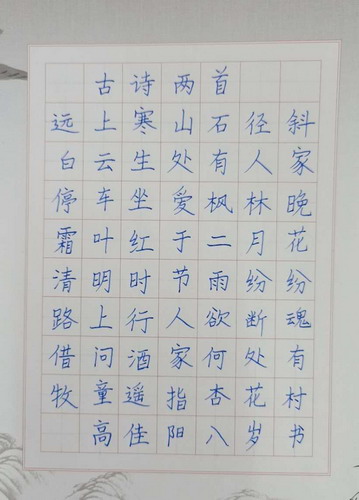 古诗两首
远上寒山石径斜
白云生处有人家
停车坐爱枫林晚
霜叶红于二月花
清明时节雨纷纷
路上行人欲断魂
借问酒家何处有
牧童遥指杏花村
高佳阳八岁书